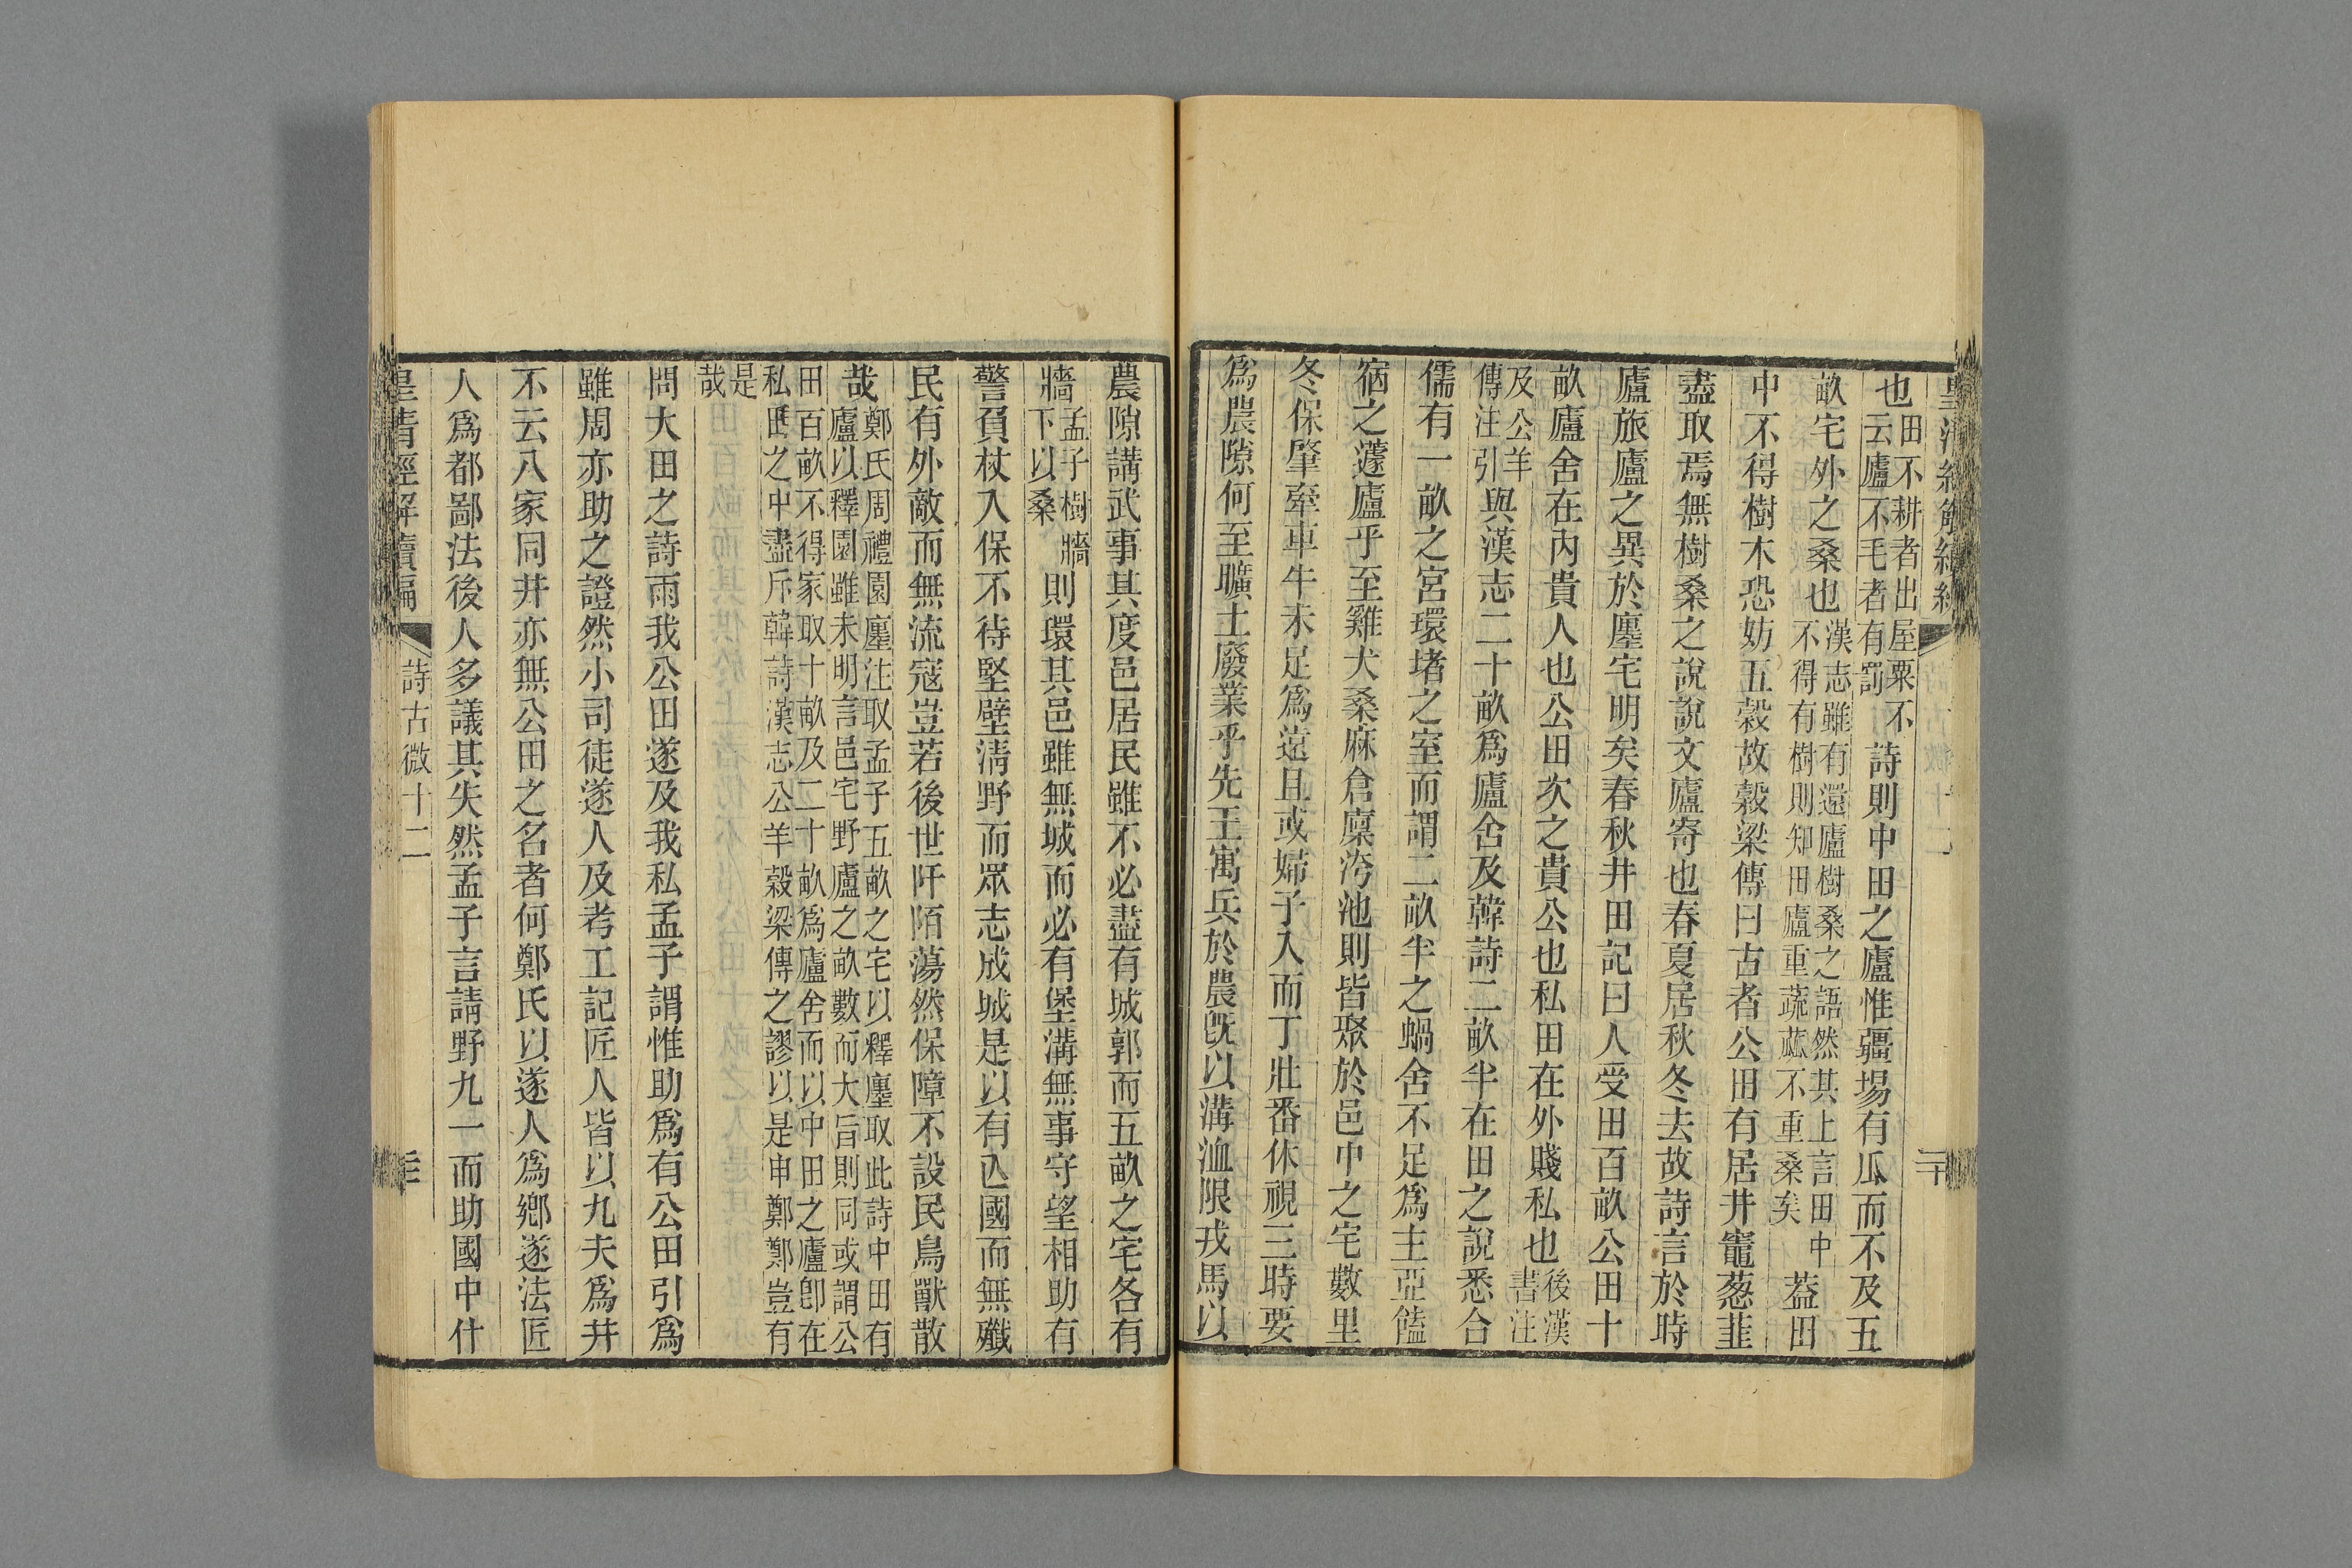 皇清經解續編
二十
也田不耕者出屋粟不
云廬不毛者有罰詩則中田之廬惟疆埸有瓜而不及五
畝宅外之桑也漢志雖有還廬樹桑之語然其上言田中
不得有樹則知田廬重蔬蓏不重桑矣蓋田
中不得樹木恐妨五穀故穀梁傳曰古者公田有居井竈葱韭
盡取焉無樹桑之說說文廬寄也春夏居秋冬去故詩言於時
廬旅廬之異於廛宅明矣春秋井田記曰人受田百畝公田十
畝廬舍在內貴人也公田次之貴公也私田在外賤私也後漢
書注
及公羊
傳注引與漢志二十畝爲廬舍及韓詩二畝半在田之說悉合
儒有一畝之宮環堵之室而謂二畝半之蝸舍不足爲主亞饁
宿之蘧廬乎至雞犬桑麻倉廩洿池則皆聚於邑中之宅數里
冬保肇牽車牛未足爲遠且或婦子入而丁壯番休視三時要
爲農隙何至曠土廢業乎先王寓兵於農旣以溝洫限戎馬以
農隙講武事其度邑居民雖不必盡有城郭而五畝之宅各有
牆孟子樹牆
下以桑則環其邑雖無城而必有堡溝無事守望相助有
警負杖入保不待堅壁淸野而眾志成城是以有亾國而無殲
民有外敵而無流寇豈若後世阡陌蕩然保障不設民鳥獸散
哉鄭氏周禮園廛注取孟子五畝之宅以釋廛取此詩中田有
廬以釋園雖未明言邑宅野廬之畝數而大旨則同或謂公
田百畝不得家取十畝及二十畝爲廬舍而以中田之廬卽在
私田之中盡斥韓詩漢志公羊穀梁傳之謬以是申鄭鄭豈有
是
哉
問大田之詩雨我公田遂及我私孟子謂惟助爲有公田引爲
雖周亦助之證然小司徒遂人及考工記匠人皆以九夫爲井
不云八家同井亦無公田之名者何鄭氏以遂人爲鄉遂法匠
人爲都鄙法後人多議其失然孟子言請野九一而助國中什
皇清經解續編
詩古微十二